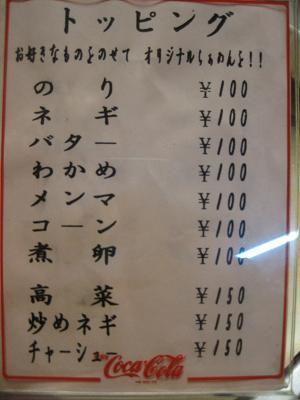 トッピング
お好きなものをのせて オリジナルらぁめんを!!
のり ¥100
ネギ ¥100
バター ¥100
わかめ ¥100
メンマ ¥100
コーン ¥100
煮卵 ¥100
高菜 ¥150
炒めネギ ¥150
チャーシュー ¥150
Coca-Cola